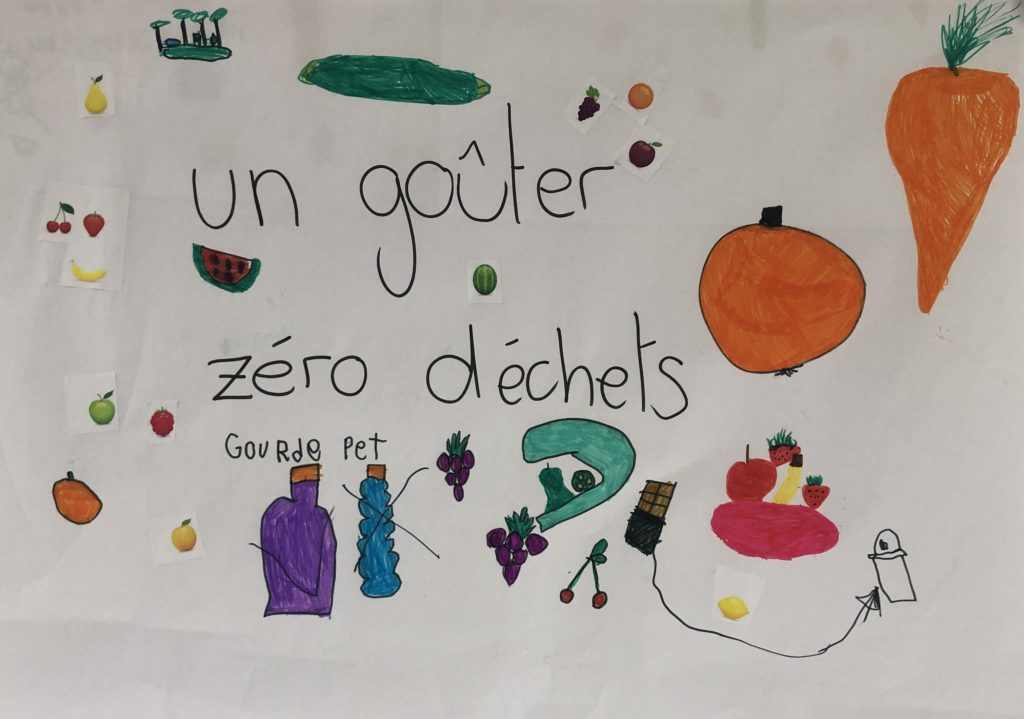 un goûter
zéro d'échets
GOURde Pet